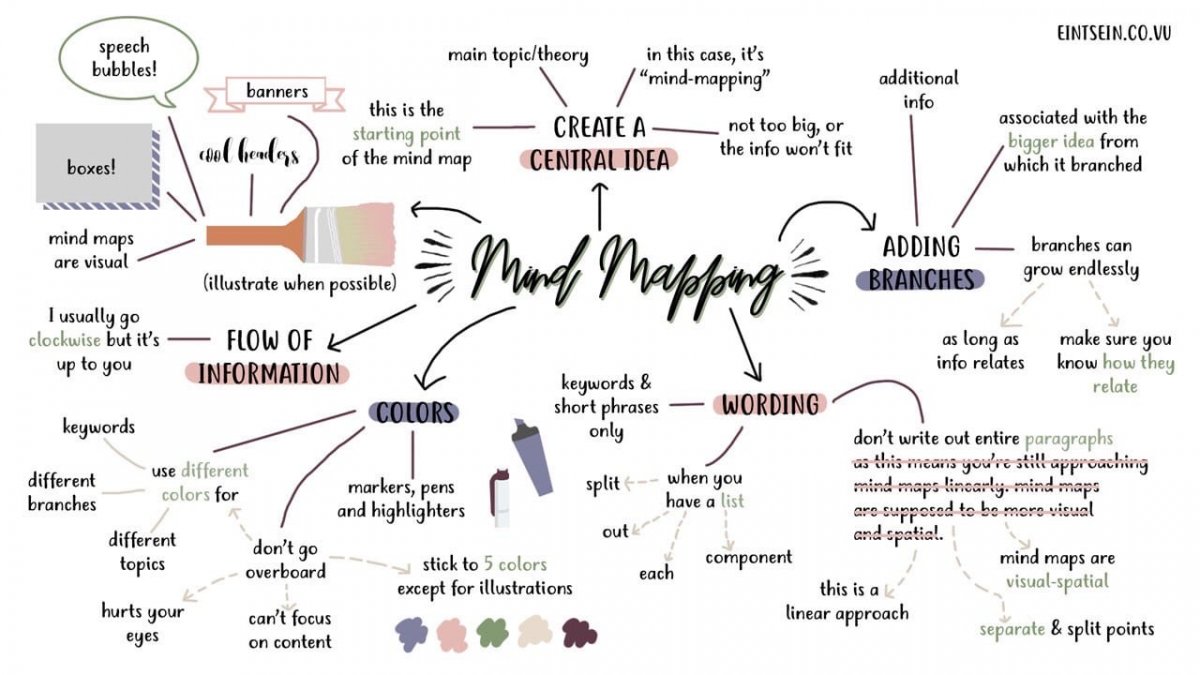 EINTSEIN.CO.VU
speech
bubbles!
banners
cool headers
boxes!
mind maps
are visual
(illustrate when possible)
main topic/theory
in this case, it's
"mind-mapping"
this is the
starting point
of the mind map
CREATE A
CENTRAL IDEA
not too big, or
the info won't fit
additional
info
associated with the
bigger idea from
which it branched
ADDING
BRANCHES
branches can
grow endlessly
as long as
info relates
make sure you
know how they
relate
Mind Mapping
I usually go
clockwise but it's
up to you
FLOW OF
INFORMATION
COLORS
keywords
different
branches
use different
colors for
different
topics
markers, pens
and highlighters
don't go
overboard
hurts your
eyes
can't focus
on content
stick to 5 colors
except for illustrations
WORDING
keywords &
short phrases
only
when you
have a list
split
out
each
component
don't write out entire paragraphs
as this means you're still approaching
mind maps linearly. mind maps
are supposed to be more visual
and spatial.
this is a
linear approach
mind maps are
visual-spatial
separate & split points